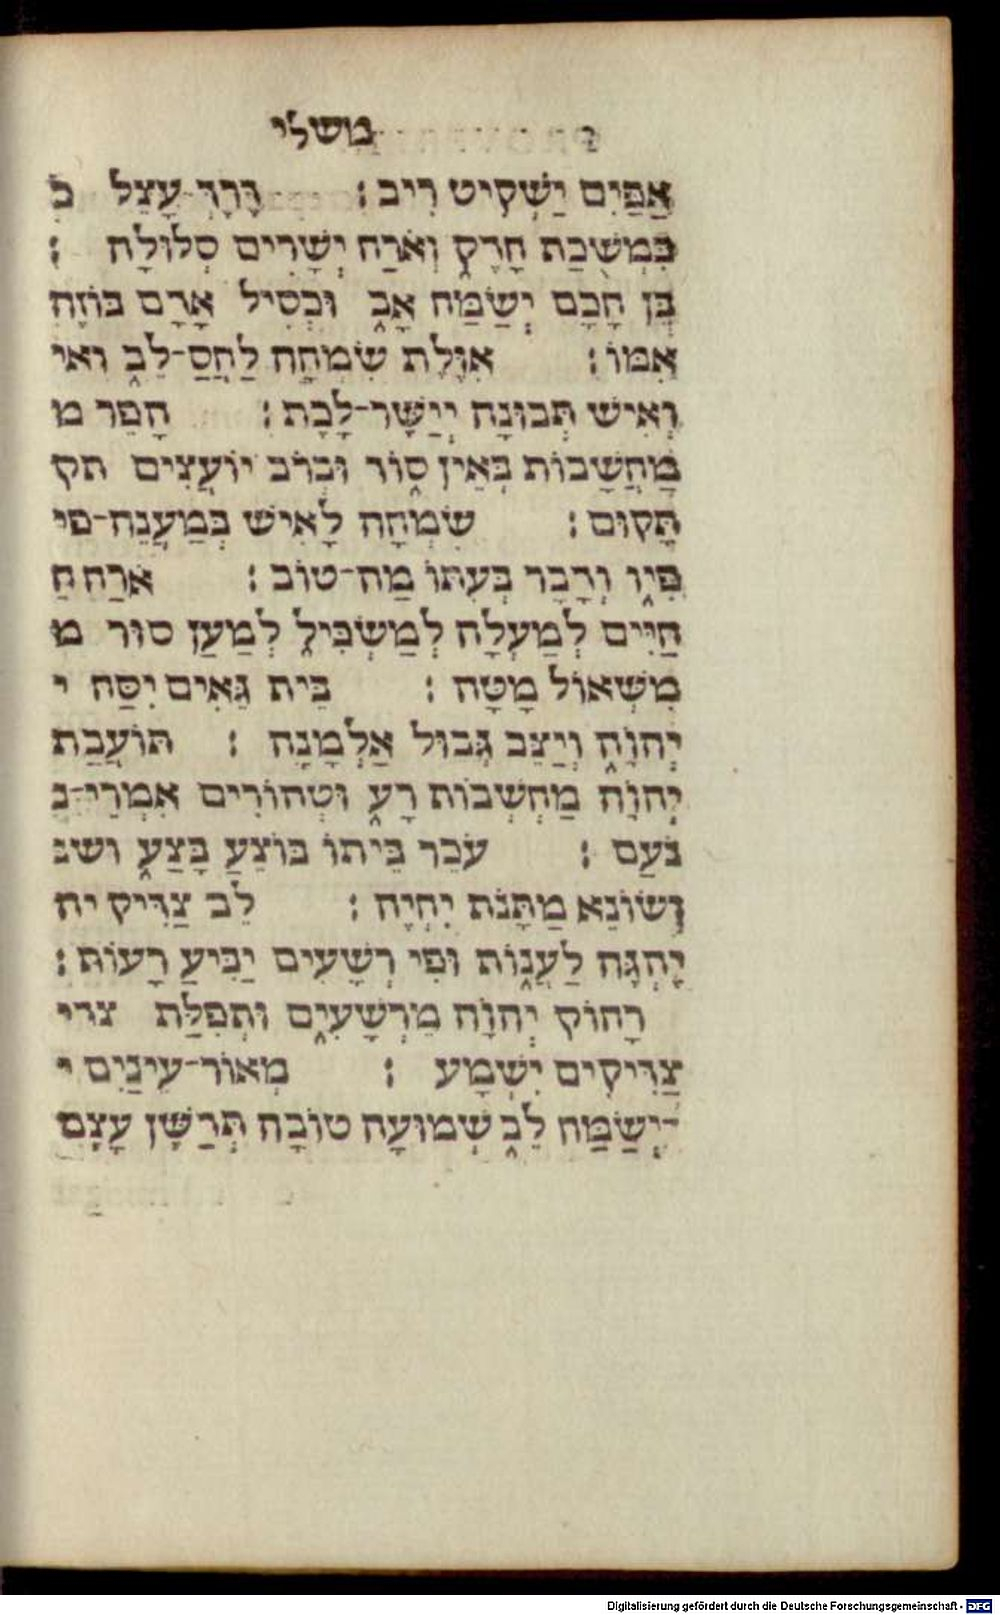 משלי
אַפַּיִם יַשְׁקִיט רִיב׃ דֶּרֶךְ עָצֵל כ
כִּמְשֻׂכַת חָדֶק וְאֹרַח יְשָׁרִים סְלוּלָה ׃
בֵּן חָכָם יְשַׂמַּח אָב וּכְסִיל אָדָם בּוֹזֶה
אִמּוֹ׃ אִוֶּלֶת שִׂמְחָה לַחֲסַר־לֵב ואי
וְאִישׁ תְּבוּנָה יְיַשֶּׁר־לָכֶת׃ הָפֵר מ
מַחֲשָׁבוֹת בְּאֵין סוֹד וּבְרֹב יוֹעֲצִים תק
תָּקוּם׃ שִׂמְחָה לָאִישׁ בְּמַעֲנֵה־פי
פִּיו וְדָבָר בְּעִתּוֹ מַה־טּוֹב׃ אֹרַח ח
חַיִּים לְמַעְלָה לְמַשְׂכִּיל לְמַעַן סוּר מ
מִשְּׁאוֹל מָטָּה ׃ בֵּית גֵּאִים יִסַּח י
יְהוָה וְיַצֵּב גְּבוּל אַלְמָנָה ׃ תּוֹעֲבַת
יְהוָה מַחְשְׁבוֹת רָע וּטְהוֹרִים אִמְרֵי־נ
נֹעַם ׃ עֹכֵר בֵּיתוֹ בּוֹצֵעַ בָּצַע ושנ
וְשׂוֹנֵא מַתָּנֹת יִחְיֶה ׃ לֵב צַדִּיק יה
יֶהְגֶּה לַעֲנוֹת וּפִי רְשָׁעִים יַבִּיעַ רָעוֹת׃
רָחוֹק יְהוָה מֵרְשָׁעִים וּתְפִלַּת צדי
צַדִּיקִים יִשְׁמָע ׃ מְאוֹר־עֵינַיִם י
יְשַׂמַּח לֵב שְׁמוּעָה טוֹבָה תְּדַשֶּׁן עָצֶם
Digitalisierung gefördert durch die Deutsche Forschungsgemeinschaft - DFG